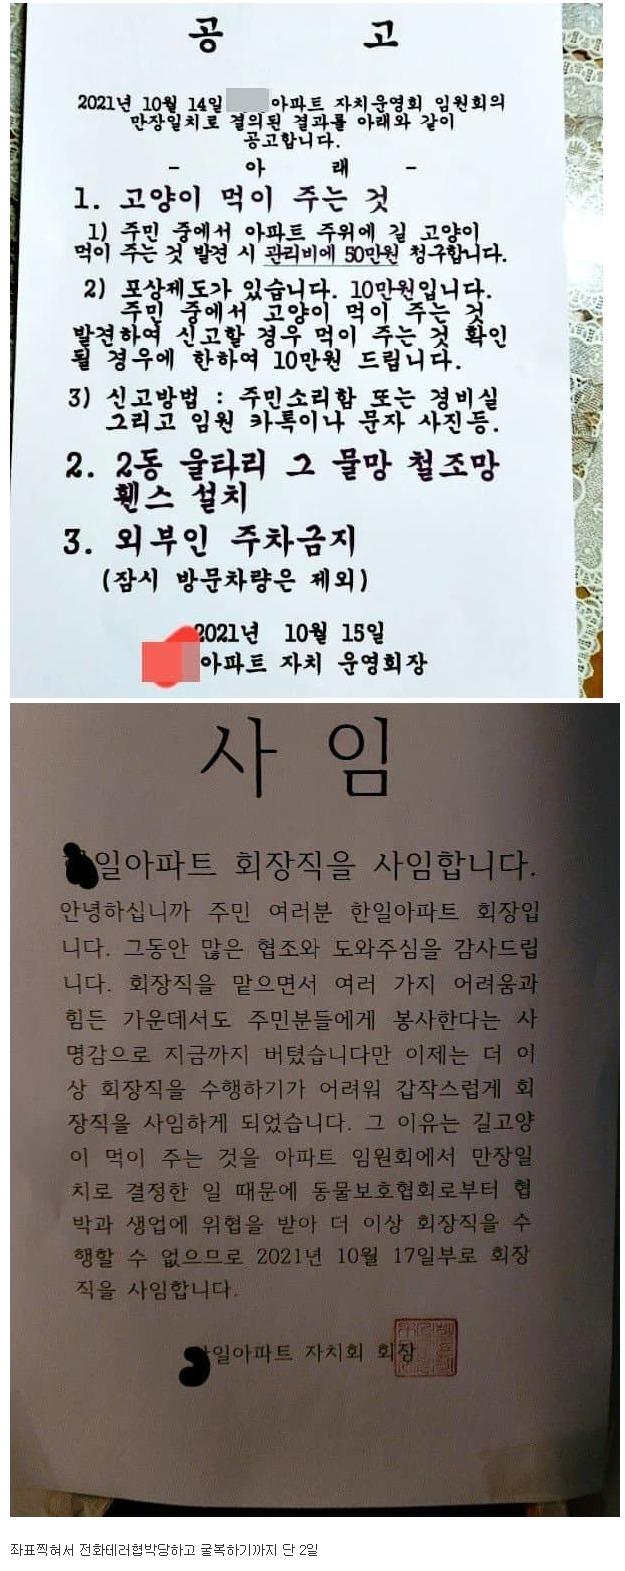 공 고
2021년 10월 14일 아파트 자치운영회 임원회의
만장일치로 결의된 결과를 아래와 같이
공고합니다.
- 아 래 -
1. 고양이 먹이 주는 것
1) 주민 중에서 아파트 주위에 길 고양이
먹이 주는 것 발견 시 관리비에 50만원 청구합니다.
2) 포상제도가 있습니다. 10만원입니다.
주민 중에서 고양이 먹이 주는 것
발견하여 신고할 경우 먹이 주는 것 확인
될 경우에 한하여 10만원 드립니다.
3) 신고방법 : 주민소리함 또는 경비실
그리고 임원 카톡이나 문자 사진등.
2. 2동 울타리 그 물망 철조망
휀스 설치
3. 외부인 주차금지
(잠시 방문차량은 제외)
2021년 10월 15일
아파트 자치 운영회장
사 임
일아파트 회장직을 사임합니다.
안녕하십니까 주민 여러분 한일아파트 회장입
니다. 그동안 많은 협조와 도와주심을 감사드립
니다. 회장직을 맡으면서 여러 가지 어려움과
힘든 가운데서도 주민분들에게 봉사한다는 사
명감으로 지금까지 버텼습니다만 이제는 더 이
상 회장직을 수행하기가 어려워 갑작스럽게 회
장직을 사임하게 되었습니다. 그 이유는 길고양
이 먹이 주는 것을 아파트 임원회에서 만장일
치로 결정한 일 때문에 동물보호협회로부터 협
박과 생업에 위협을 받아 더 이상 회장직을 수
행할 수 없으므로 2021년 10월 17일부로 회장
직을 사임합니다.
일아파트 자치회 회장
좌표찍혀서 전화테러협박당하고 굴복하기까지 단 2일